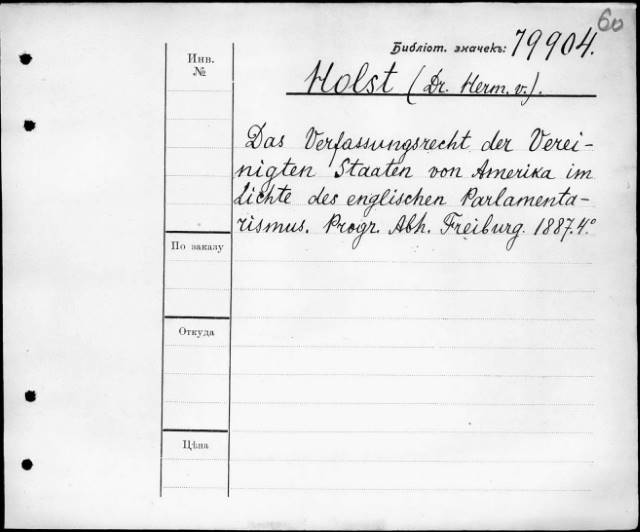 60
Библіот. значекъ: 79904.
Инв.
№
Holst (Dr. Herm. v.).
Das Verfassungsrecht der Verei-
nigten Staaten von Amerika im
Lichte des englischen Parlamenta-
rismus. Progr. Abh. Freiburg. 1887. 4°
По заказу
Откуда
Цѣна